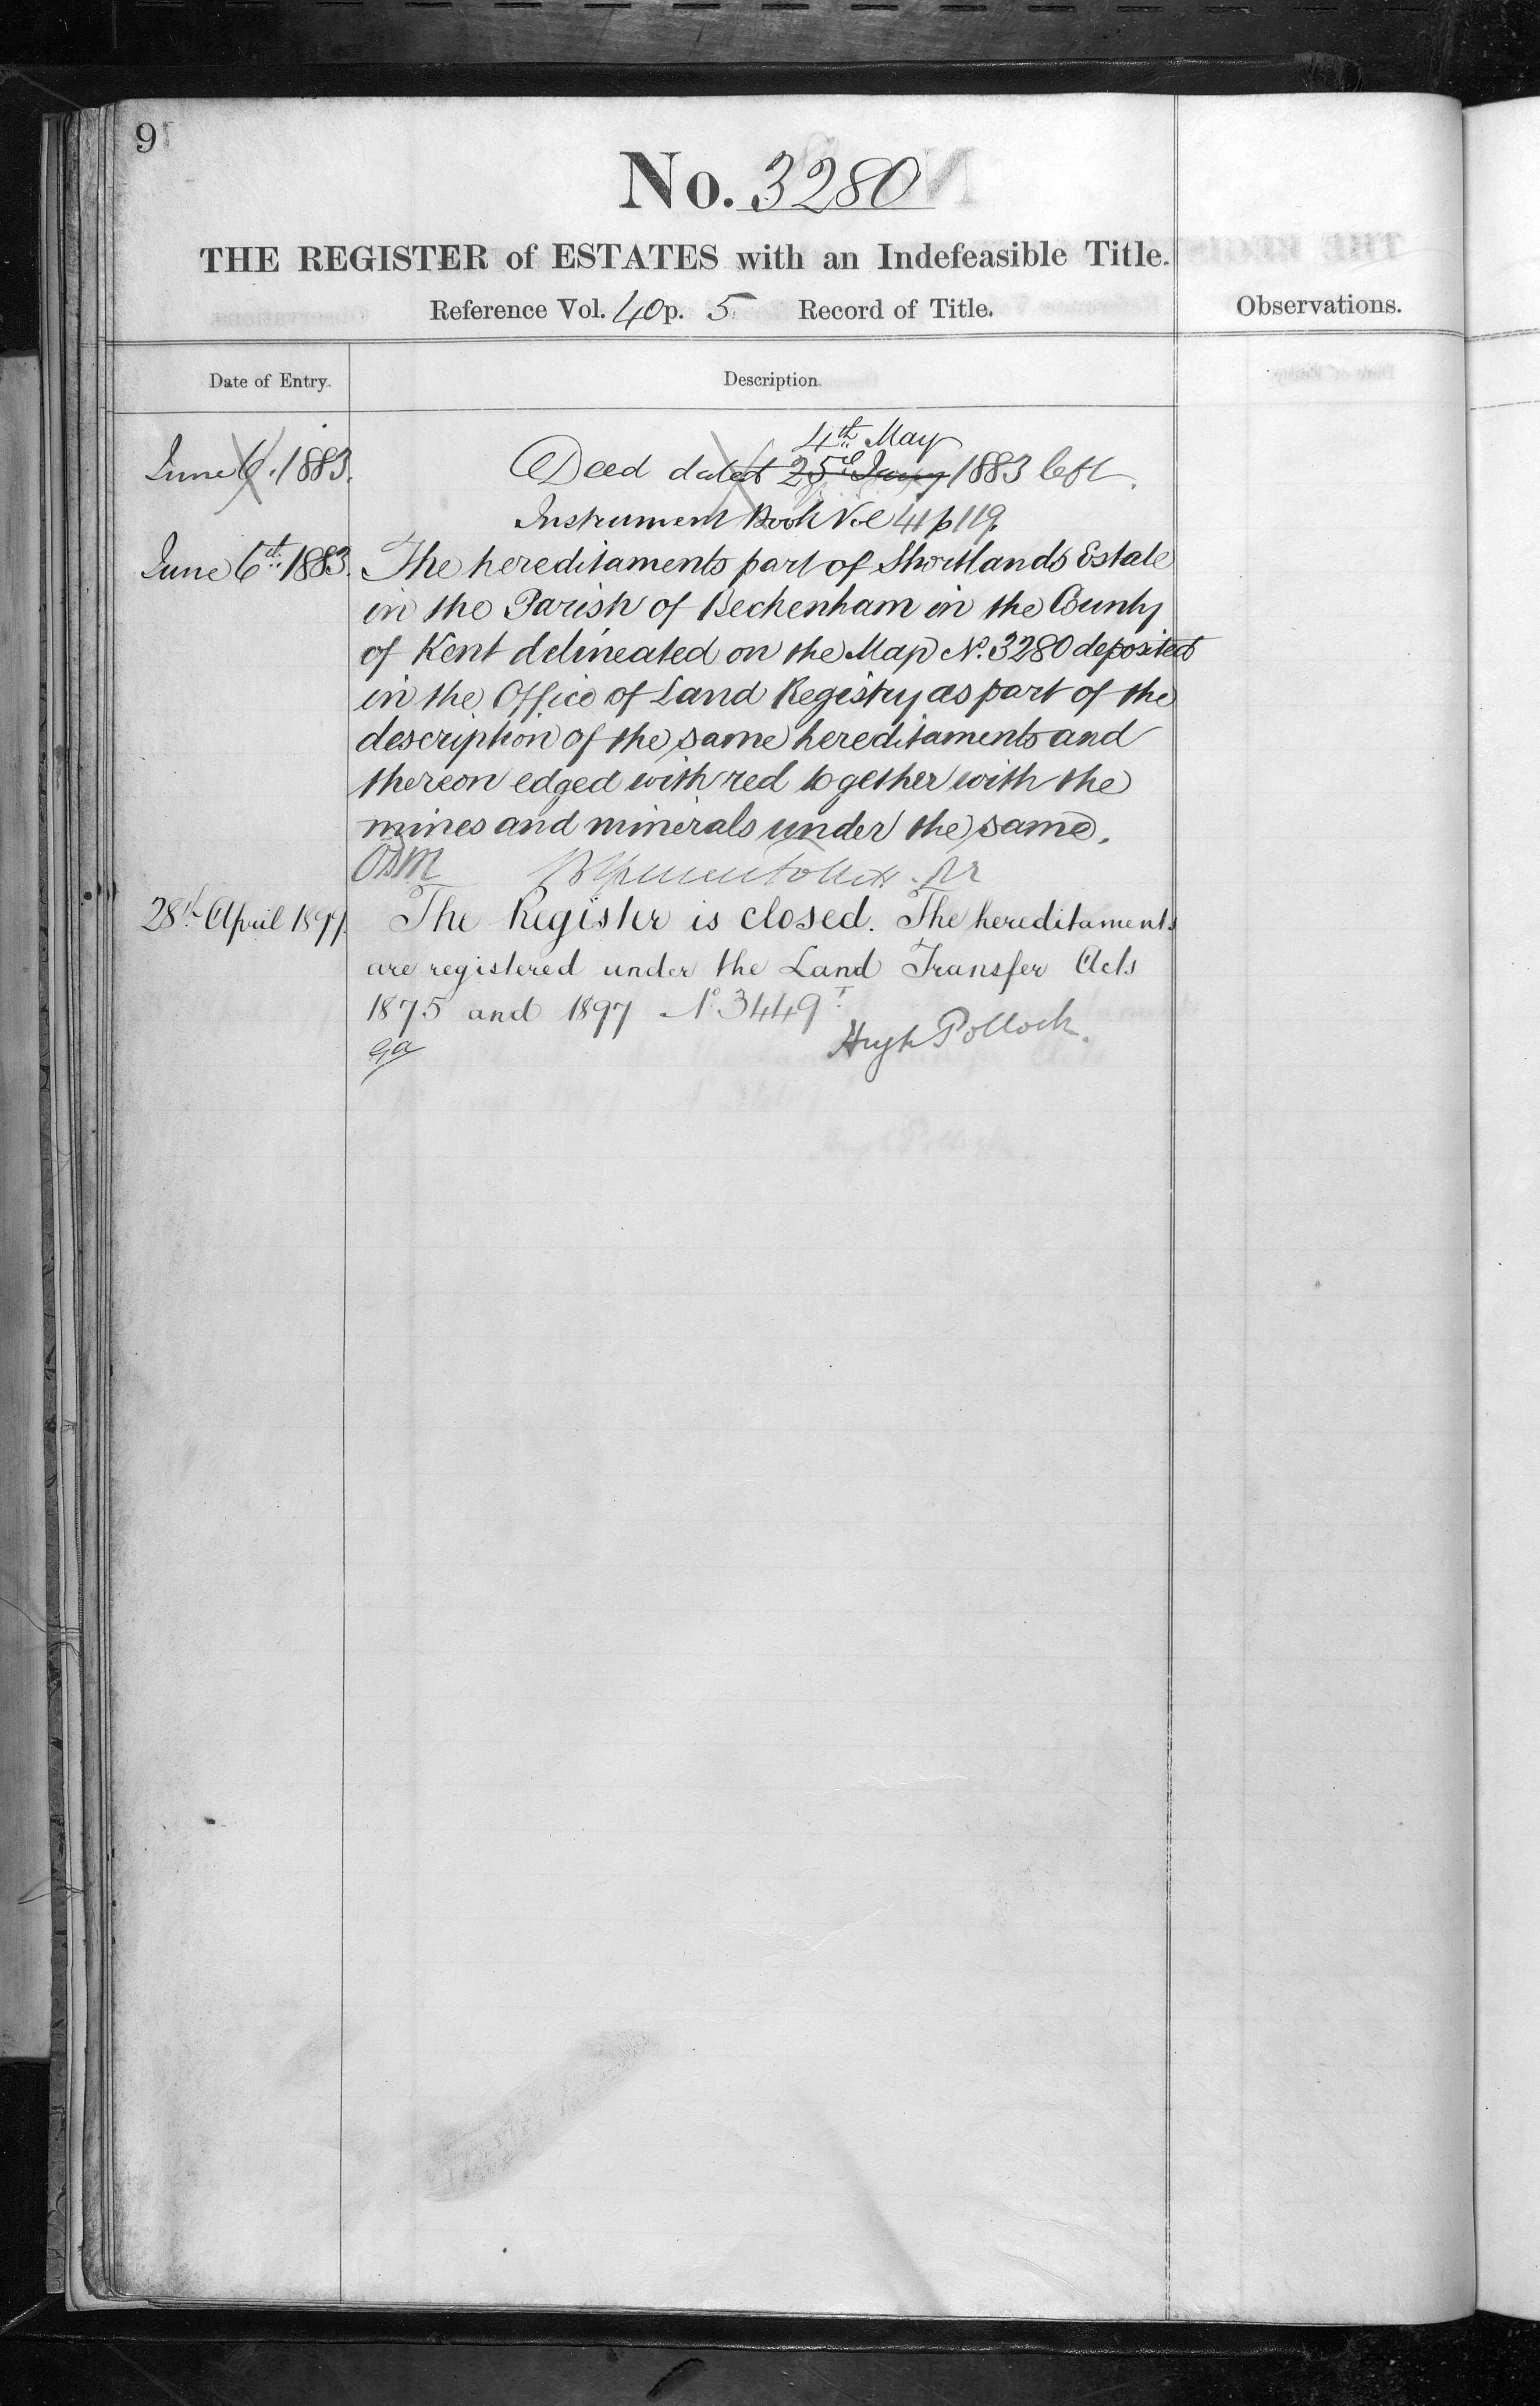 9
No. 3280
THE REGISTER of ESTATES with an Indefeasible Title.
Reference Vol. 40 p. 5 Record of Title.
Observations.
Date of Entry.
Description.
4th May
June 6. 1883. Deed dated 25th Jany 1883 left.
Instrument Book Vol 41 p 119.
June 6th 1883. The hereditaments part of Shortlands Estate
in the Parish of Beckenham in the County
of Kent delineated on the Map No. 3280 deposited
in the Office of Land Registry as part of the
description of the same hereditaments and
thereon edged with red together with the
mines and minerals under the same.
28th April 1899. The Register is closed. The hereditaments
are registered under the Land Transfer Acts
1875 and 1897 No 3449
Hugh Pollock.